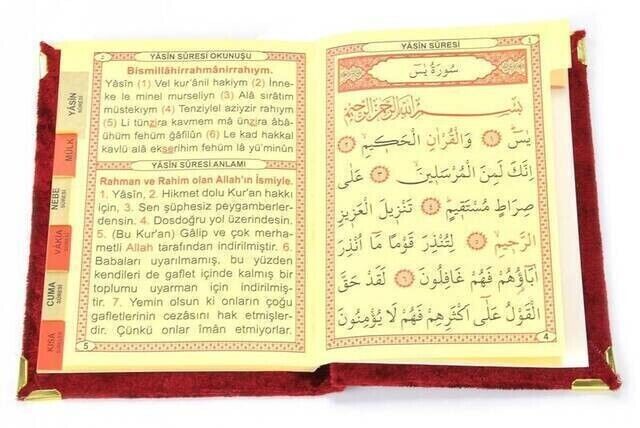 YÂSİN SÛRESİ
MÜLK
NEBE
SÛRESİ
VÂKIA
SÛRESİ
CUMA
SÛRESİ
KISA
SÛRELER
YÂSİN SÛRESİ OKUNUŞU
Bismillâhirrahmânirrahıym.
Yâsîn (1) Vel kur'ânil hakiym (2) İnne-
ke le minel murseliyn (3) Alâ sırâtim
müstekıym (4) Tenziylel aziyzir rahıym
(5) Li tünzira kavmem mâ ünzira âbâ-
ühüm fehüm ğâfilûn (6) Le kad hakkal
kavlü alâ ekserihim fehüm lâ yü'minûn
YÂSİN SÛRESİ ANLAMI
Rahman ve Rahim olan Allah'ın İsmiyle.
1. Yâsîn, 2. Hikmet dolu Kur'an hakkı
için, 3. Sen şüphesiz peygamberler-
densin. 4. Dosdoğru yol üzerindesin.
5. (Bu Kur'an) Gâlip ve çok merha-
metli Allah tarafından indirilmiştir. 6.
Babaları uyarılmamış, bu yüzden
kendileri de gaflet içinde kalmış bir
toplumu uyarman için indirilmiş-
tir. 7. Yemin olsun ki onların çoğu
gafletlerinin cezasını hak etmişler-
dir. Çünkü onlar îmân etmiyorlar.
5
YÂSİN SÛRESİ
سُورَةُ يٰسٓ
بِسْمِ اللّٰهِ الرَّحْمٰنِ الرَّحِيمِ
يٰسٓ ﴿١﴾ وَالْقُرْاٰنِ الْحَكِيمِ ﴿٢﴾
اِنَّكَ لَمِنَ الْمُرْسَلِينَ ﴿٣﴾ عَلٰى
صِرَاطٍ مُسْتَقِيمٍ ﴿٤﴾ تَنْزِيلَ الْعَزِيزِ
الرَّحِيمِ ﴿٥﴾ لِتُنْذِرَ قَوْمًا مَا اُنْذِرَ
اٰبَاؤُهُمْ فَهُمْ غَافِلُونَ ﴿٦﴾ لَقَدْ حَقَّ
الْقَوْلُ عَلٰٓى اَكْثَرِهِمْ فَهُمْ لَا يُؤْمِنُونَ
4